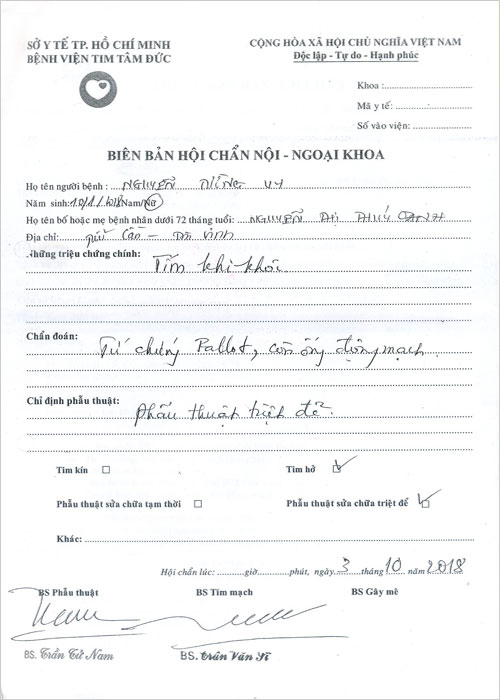 SỞ Y TẾ TP. HỒ CHÍ MINH
BỆNH VIỆN TIM TÂM ĐỨC
CỘNG HÒA XÃ HỘI CHỦ NGHĨA VIỆT NAM
Độc lập - Tự do - Hạnh phúc
Khoa :
Mã y tế:
Số vào viện:
BIÊN BẢN HỘI CHẨN NỘI - NGOẠI KHOA
Họ tên người bệnh : NGUYỄN VY
Năm sinh: Nam/Nữ
Họ tên bố hoặc mẹ bệnh nhân dưới 72 tháng tuổi: NGUYỄN THỊ
Địa chỉ:
Những triệu chứng chính: Tím khi khóc
Chẩn đoán: Tứ chứng Fallot, còn ống động mạch
Chỉ định phẫu thuật: Phẫu thuật triệt để
Tim kín
Tim hở
Phẫu thuật sửa chữa tạm thời
Phẫu thuật sửa chữa triệt để
Khác:
Hội chẩn lúc: giờ phút, ngày 3 tháng 10 năm 2018
BS Phẫu thuật
BS Tim mạch
BS Gây mê
BS. Trần Tử Nam
BS. Trần Văn Sĩ